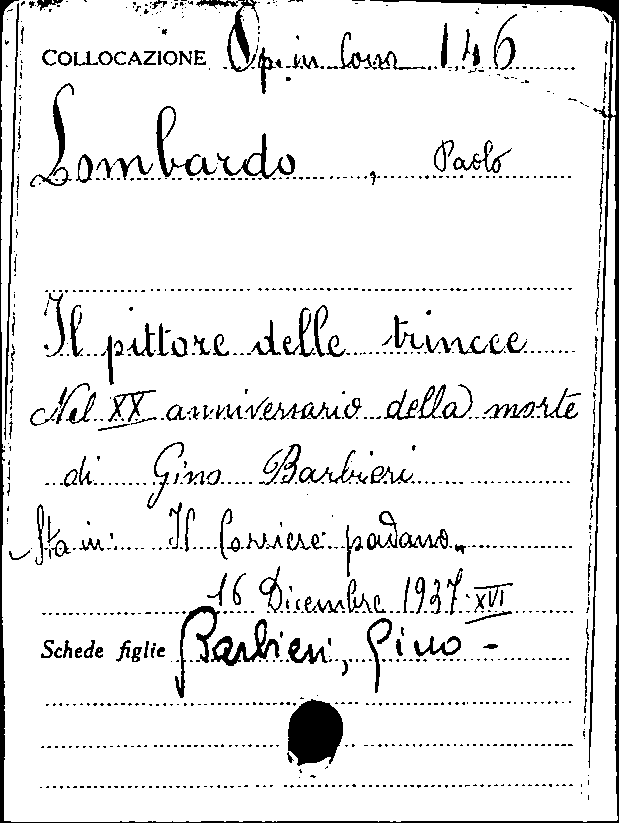 COLLOCAZIONE Op. in Cons 146
Lombardo, Paolo
Il pittore delle trincee
Nel XX anniversario della morte
di Gino Barbieri
Sta in: Il Corriere padano„
16 Dicembre 1937·XVI
Schede figlie Barbieri, Gino -